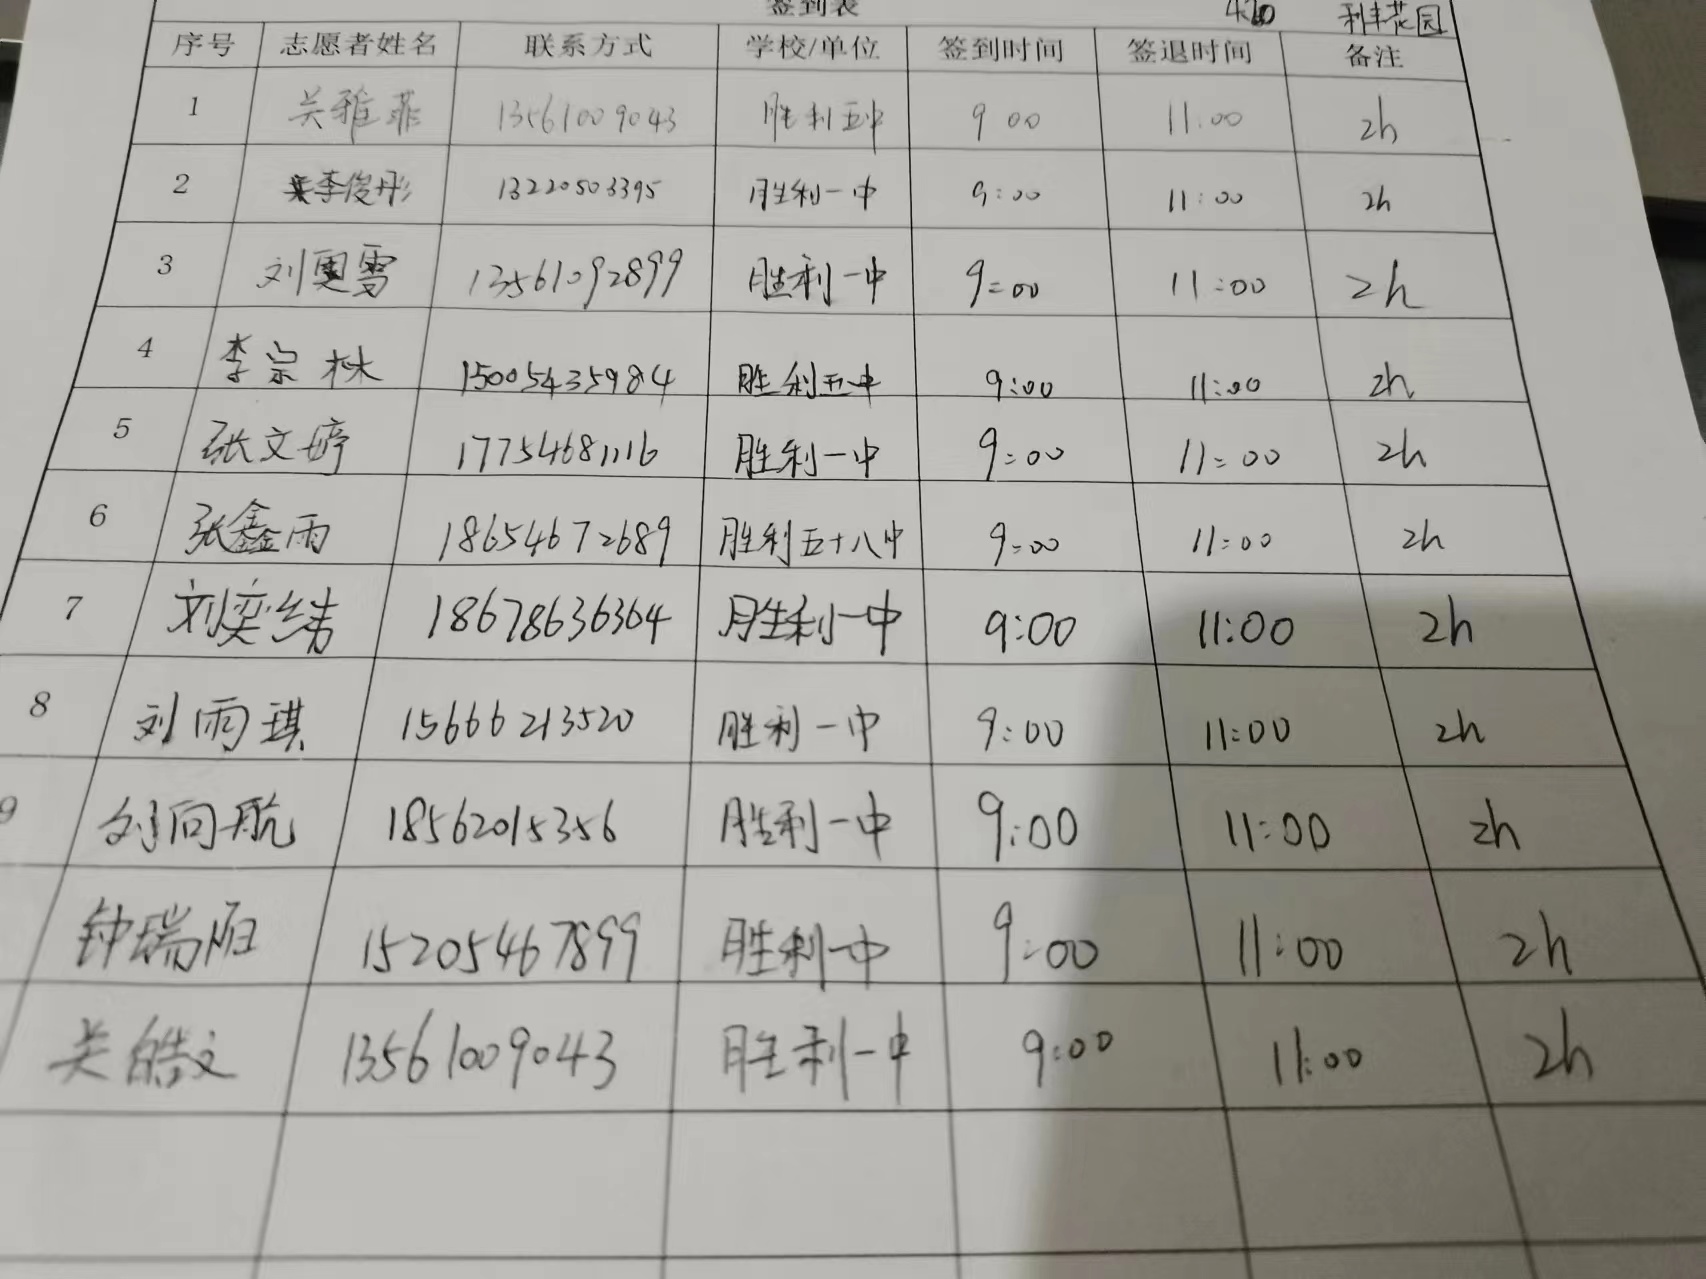 签到表 利丰花园
序号 志愿者姓名 联系方式 学校/单位 签到时间 签退时间 备注
1 关雅菲 13561009043 胜利五中 9 00 11:00 2h
2 李俊彤 13220503395 胜利一中 9:00 11:00 2h
3 刘雪 13561092899 胜利一中 9:00 11:00 2h
4 李宗林 15005435984 胜利五中 9:00 11:00 2h
5 张文婷 17754681116 胜利一中 9:00 11:00 2h
6 张鑫雨 18654672689 胜利五十八中 9:00 11:00 2h
7 刘奕纬 18678636364 胜利一中 9:00 11:00 2h
8 刘雨琪 15666213520 胜利一中 9:00 11:00 2h
9 刘向航 18562015356 胜利一中 9:00 11:00 2h
钟瑞阳 15205467899 胜利一中 9:00 11:00 2h
关皓文 13561009043 胜利一中 9:00 11:00 2h